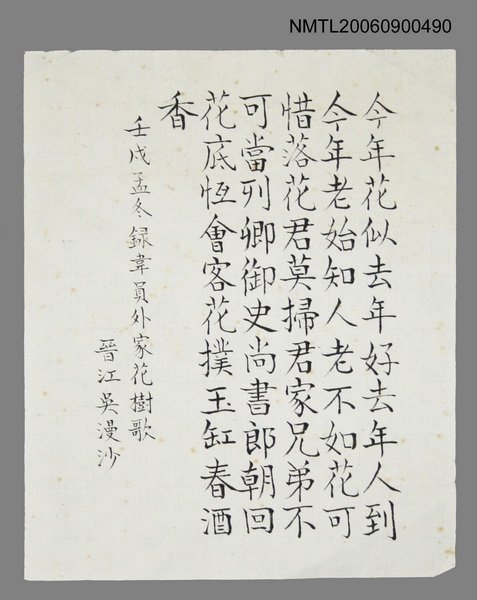 NMTL20060900490
今年花似去年好去年人到
今年老始知人老不如花可
惜落花君莫掃君家兄弟不
可當列卿御史尚書郎朝回
花底恆會客花撲玉缸春酒
香
壬戌孟冬録韋員外家花樹歌
晉江吳漫沙